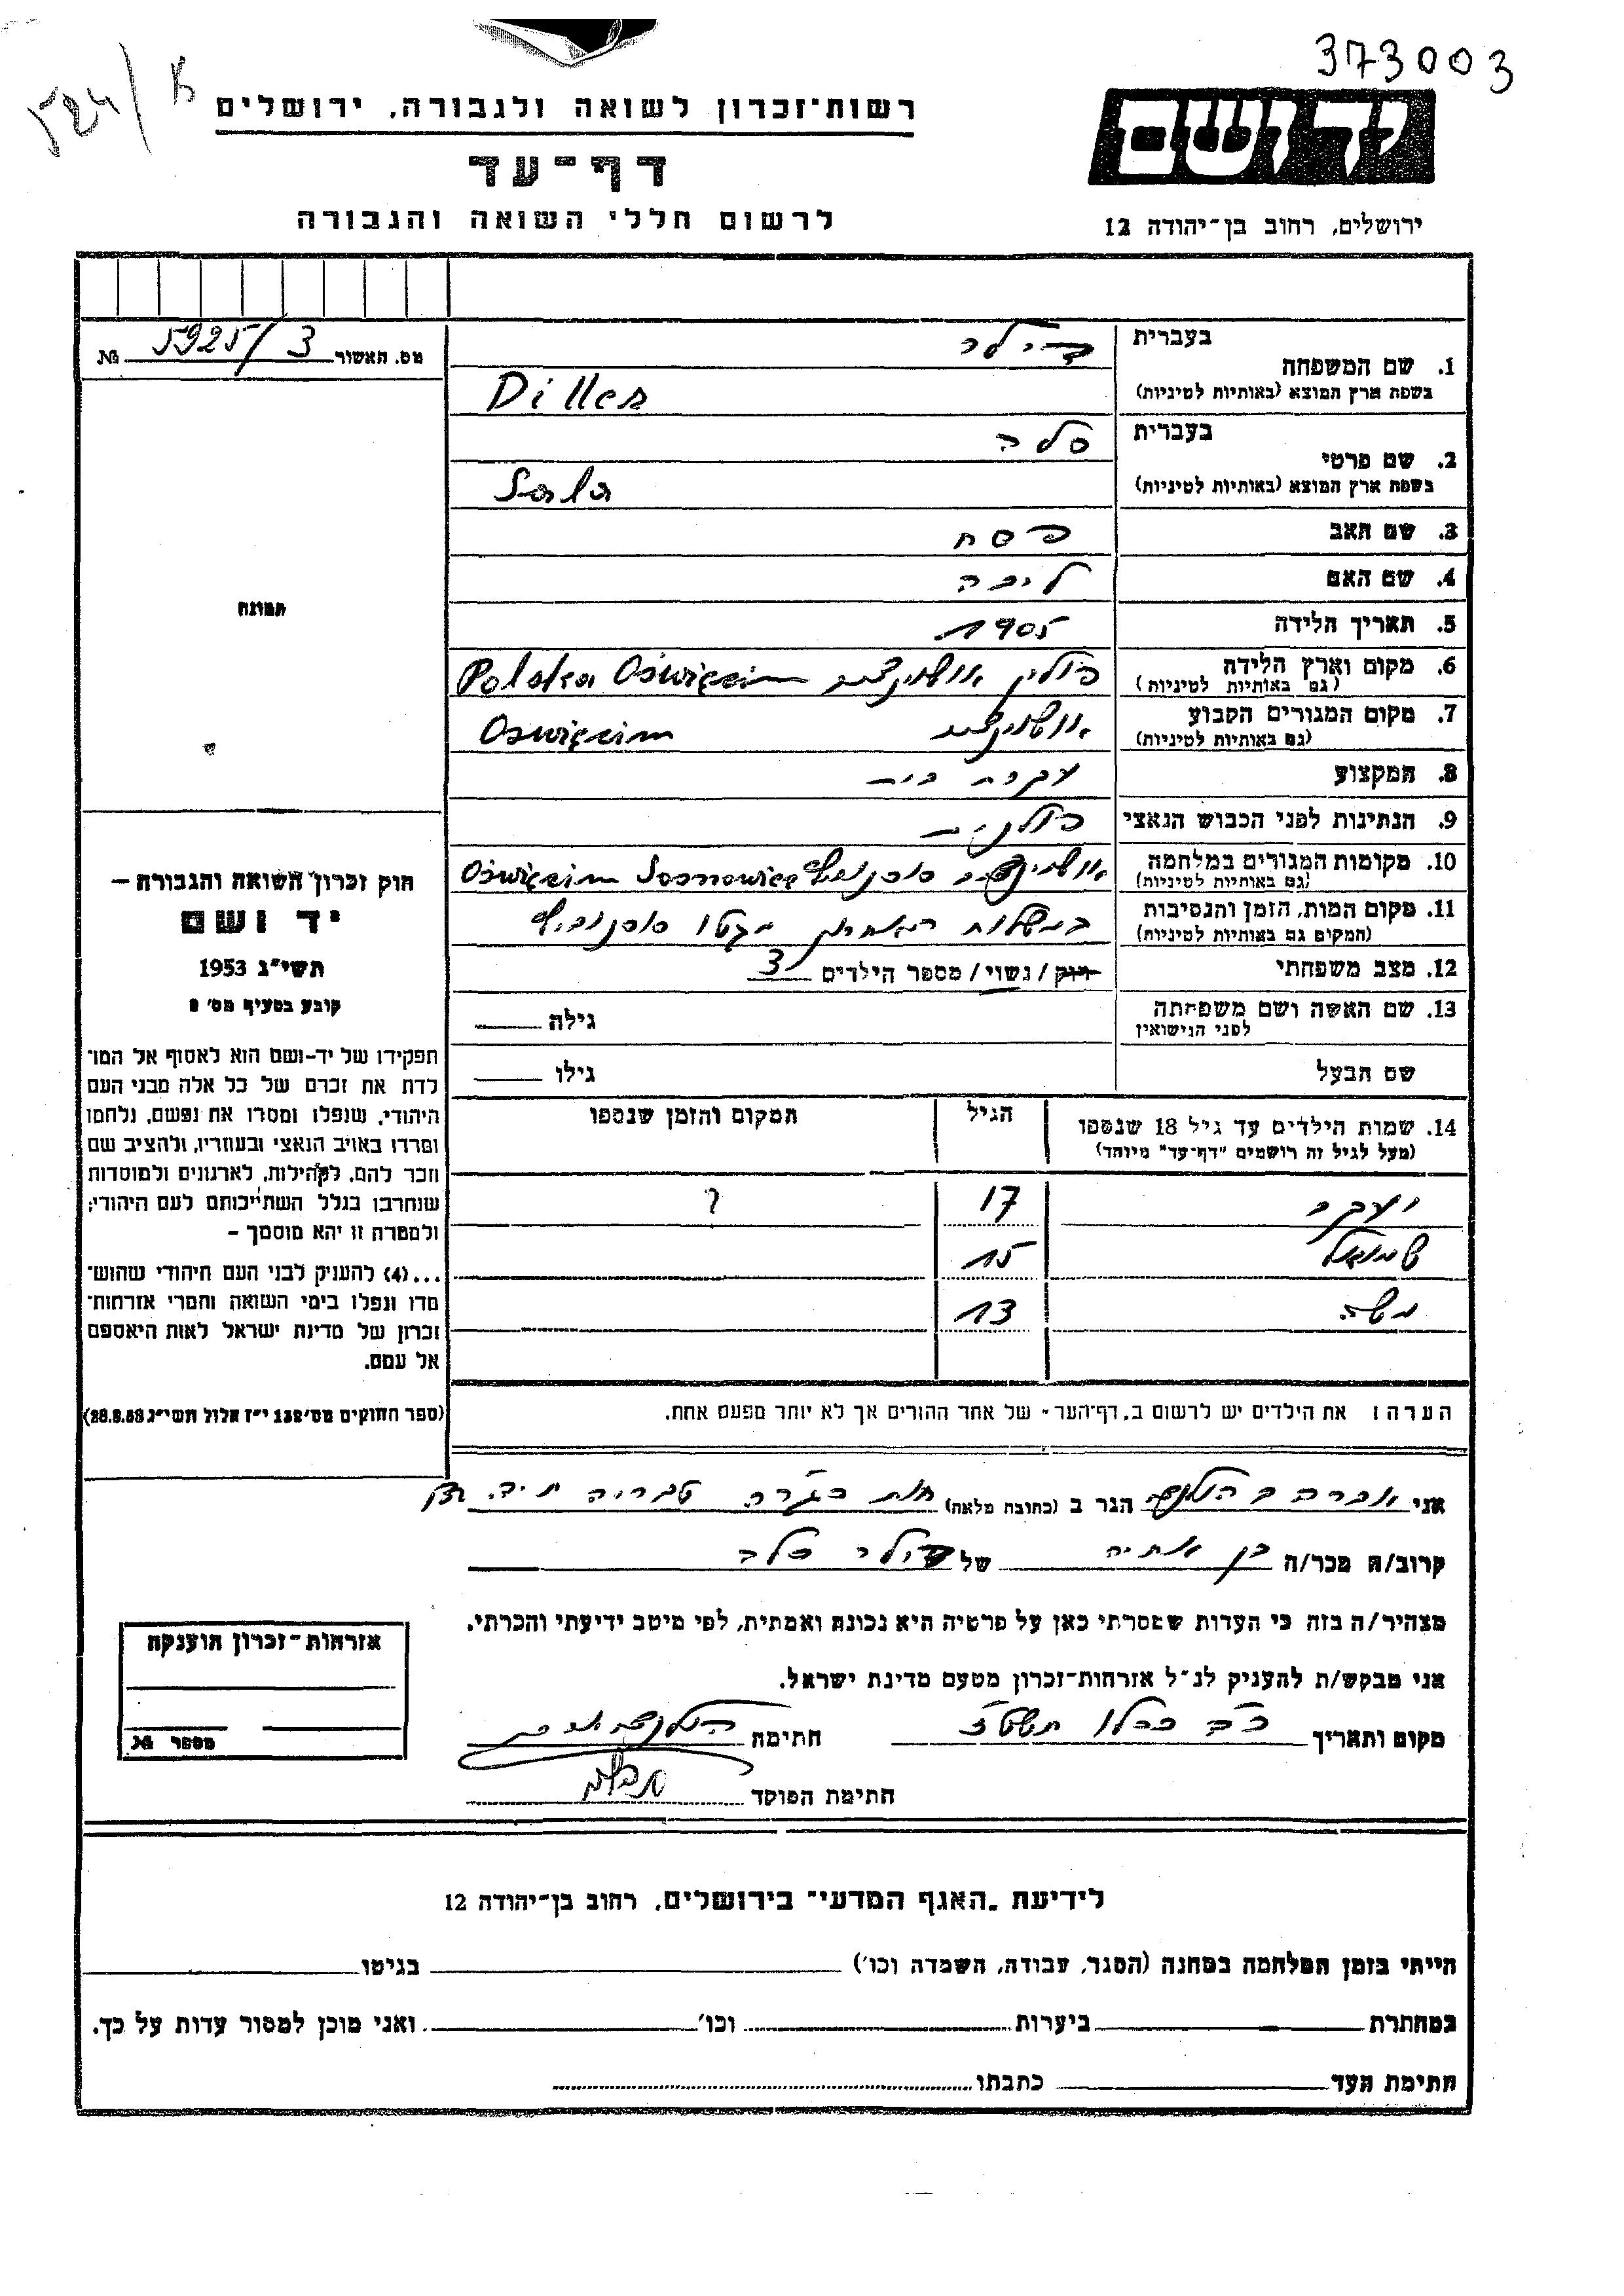 373003
524/א
רשות־זכרון לשואה ולגבורה, ירושלים
דף־עד
לרשום חללי השואה והגבורה
יד ושם
ירושלים, רחוב בן־יהודה 12
מס. האשור 5925/3 №
1. שם המשפחה
בעברית דילר
בשפת ארץ המוצא (באותיות לטיניות) Diller
2. שם פרטי
בעברית סלה
בשפת ארץ המוצא (באותיות לטיניות) Sala
3. שם האב פסח
4. שם האם
5. תאריך הלידה 1905
6. מקום וארץ הלידה
(גם באותיות לטיניות) פולין אושוינצים Polska Oświęcim
7. מקום המגורים הקבוע
(גם באותיות לטיניות) אושוינצים Oswięcim
8. המקצוע עקרת בית
9. הנתינות לפני הכבוש הנאצי פולנית
10. מקומות המגורים במלחמה
(גם באותיות לטיניות) אושוינצים סוסנוביץ Oświęcim Sosnowice
11. מקום המות, הזמן והנסיבות
(המקום גם באותיות לטיניות) במשלוח האחרון מגטו סוסנוביץ
12. מצב משפחתי רווק / נשוי / מספר הילדים 3
13. שם האשה ושם משפחתה
לפני הנישואין גילה
שם הבעל גילו
14. שמות הילדים עד גיל 18 שנספו
(מעל לגיל זה רושמים "דף־עד" מיוחד)
הגיל
המקום והזמן שנספו
יעקב 17 ?
שמואל 15
משה 13
הערה: את הילדים יש לרשום ב„דף־העד" של אחד ההורים אך לא יותר מפעם אחת.
תמונה
חוק זכרון השואה והגבורה –
יד ושם
תשי"ג 1953
קובע בסעיף מס' 2
תפקידו של יד-ושם הוא לאסוף אל המו־
לדת את זכרם של כל אלה מבני העם
היהודי, שנפלו ומסרו את נפשם, נלחמו
ומרדו באויב הנאצי ובעוזריו, ולהציב שם
וזכר להם, לקהילות, לארגונים ולמוסדות
שנחרבו בגלל השתייכותם לעם היהודי;
ולמטרה זו יהא מוסמך –
...(4) להעניק לבני העם היהודי שהוש־
מדו ונפלו בימי השואה והמרי אזרחות־
זכרון של מדינת ישראל לאות היאספם
אל עמם.
(ספר החוקים מס' 132 י"ז אלול תשי"ג 28.8.53)
אני אברהם הגר ב (כתובת מלאה) טבריה
קרוב/ה מכר/ה בן אחיה של דילר סלה
מצהיר/ה בזה כי העדות שמסרתי כאן על פרטיה היא נכונה ואמתית, לפי מיטב ידיעתי והכרתי.
אני מבקש/ת להעניק לנ"ל אזרחות־זכרון מטעם מדינת ישראל.
מקום ותאריך כ"ב כסלו תשט"ז חתימה
חתימת הפוקד
אזרחות־זכרון הוענקה
מספר №
לידיעת „האגף המדעי" בירושלים, רחוב בן־יהודה 12
הייתי בזמן המלחמה במחנה (הסגר, עבודה, השמדה וכו') בגיטו
במחתרת ביערות וכו' ואני מוכן למסור עדות על כך.
חתימת העד כתבתו